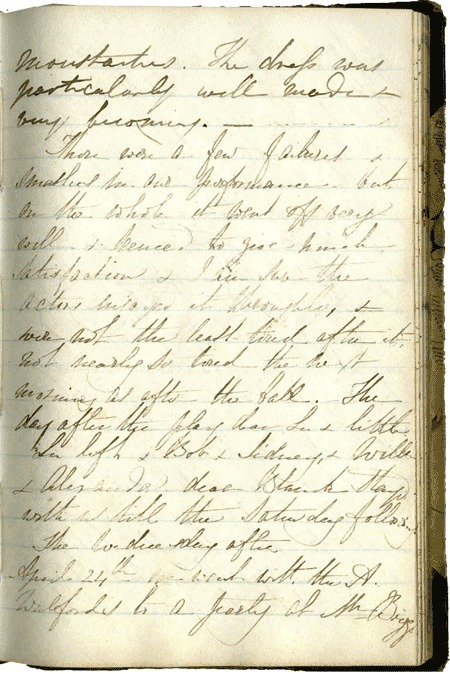 moustaches. The dress was
particularly well made &
very becoming. —
There were a few failures &
in our performance but
on the whole it went off very
well & seemed to give much
satisfaction & I am sure the
actors enjoyed it thoroughly, &
were not the least tired after it,
not nearly so tired the next
morning as after the ball. The
day after the play dear & little
left & Bob & Sidney, & Willie
& Alexander dear stayed
with us till the Saturday following
The Wednesday after
April 24th we went with the A.
Walfords to a party at Mr Briggs